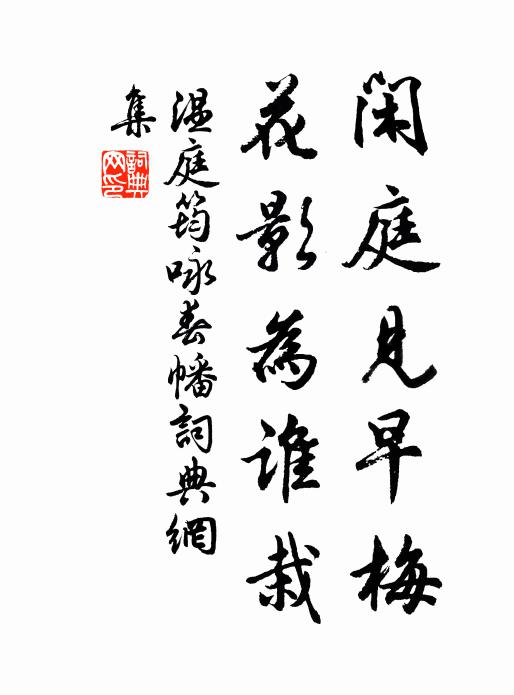 闲庭見早梅
花影為誰栽
温庭筠咏春幡詞典網
集
詞典
网印